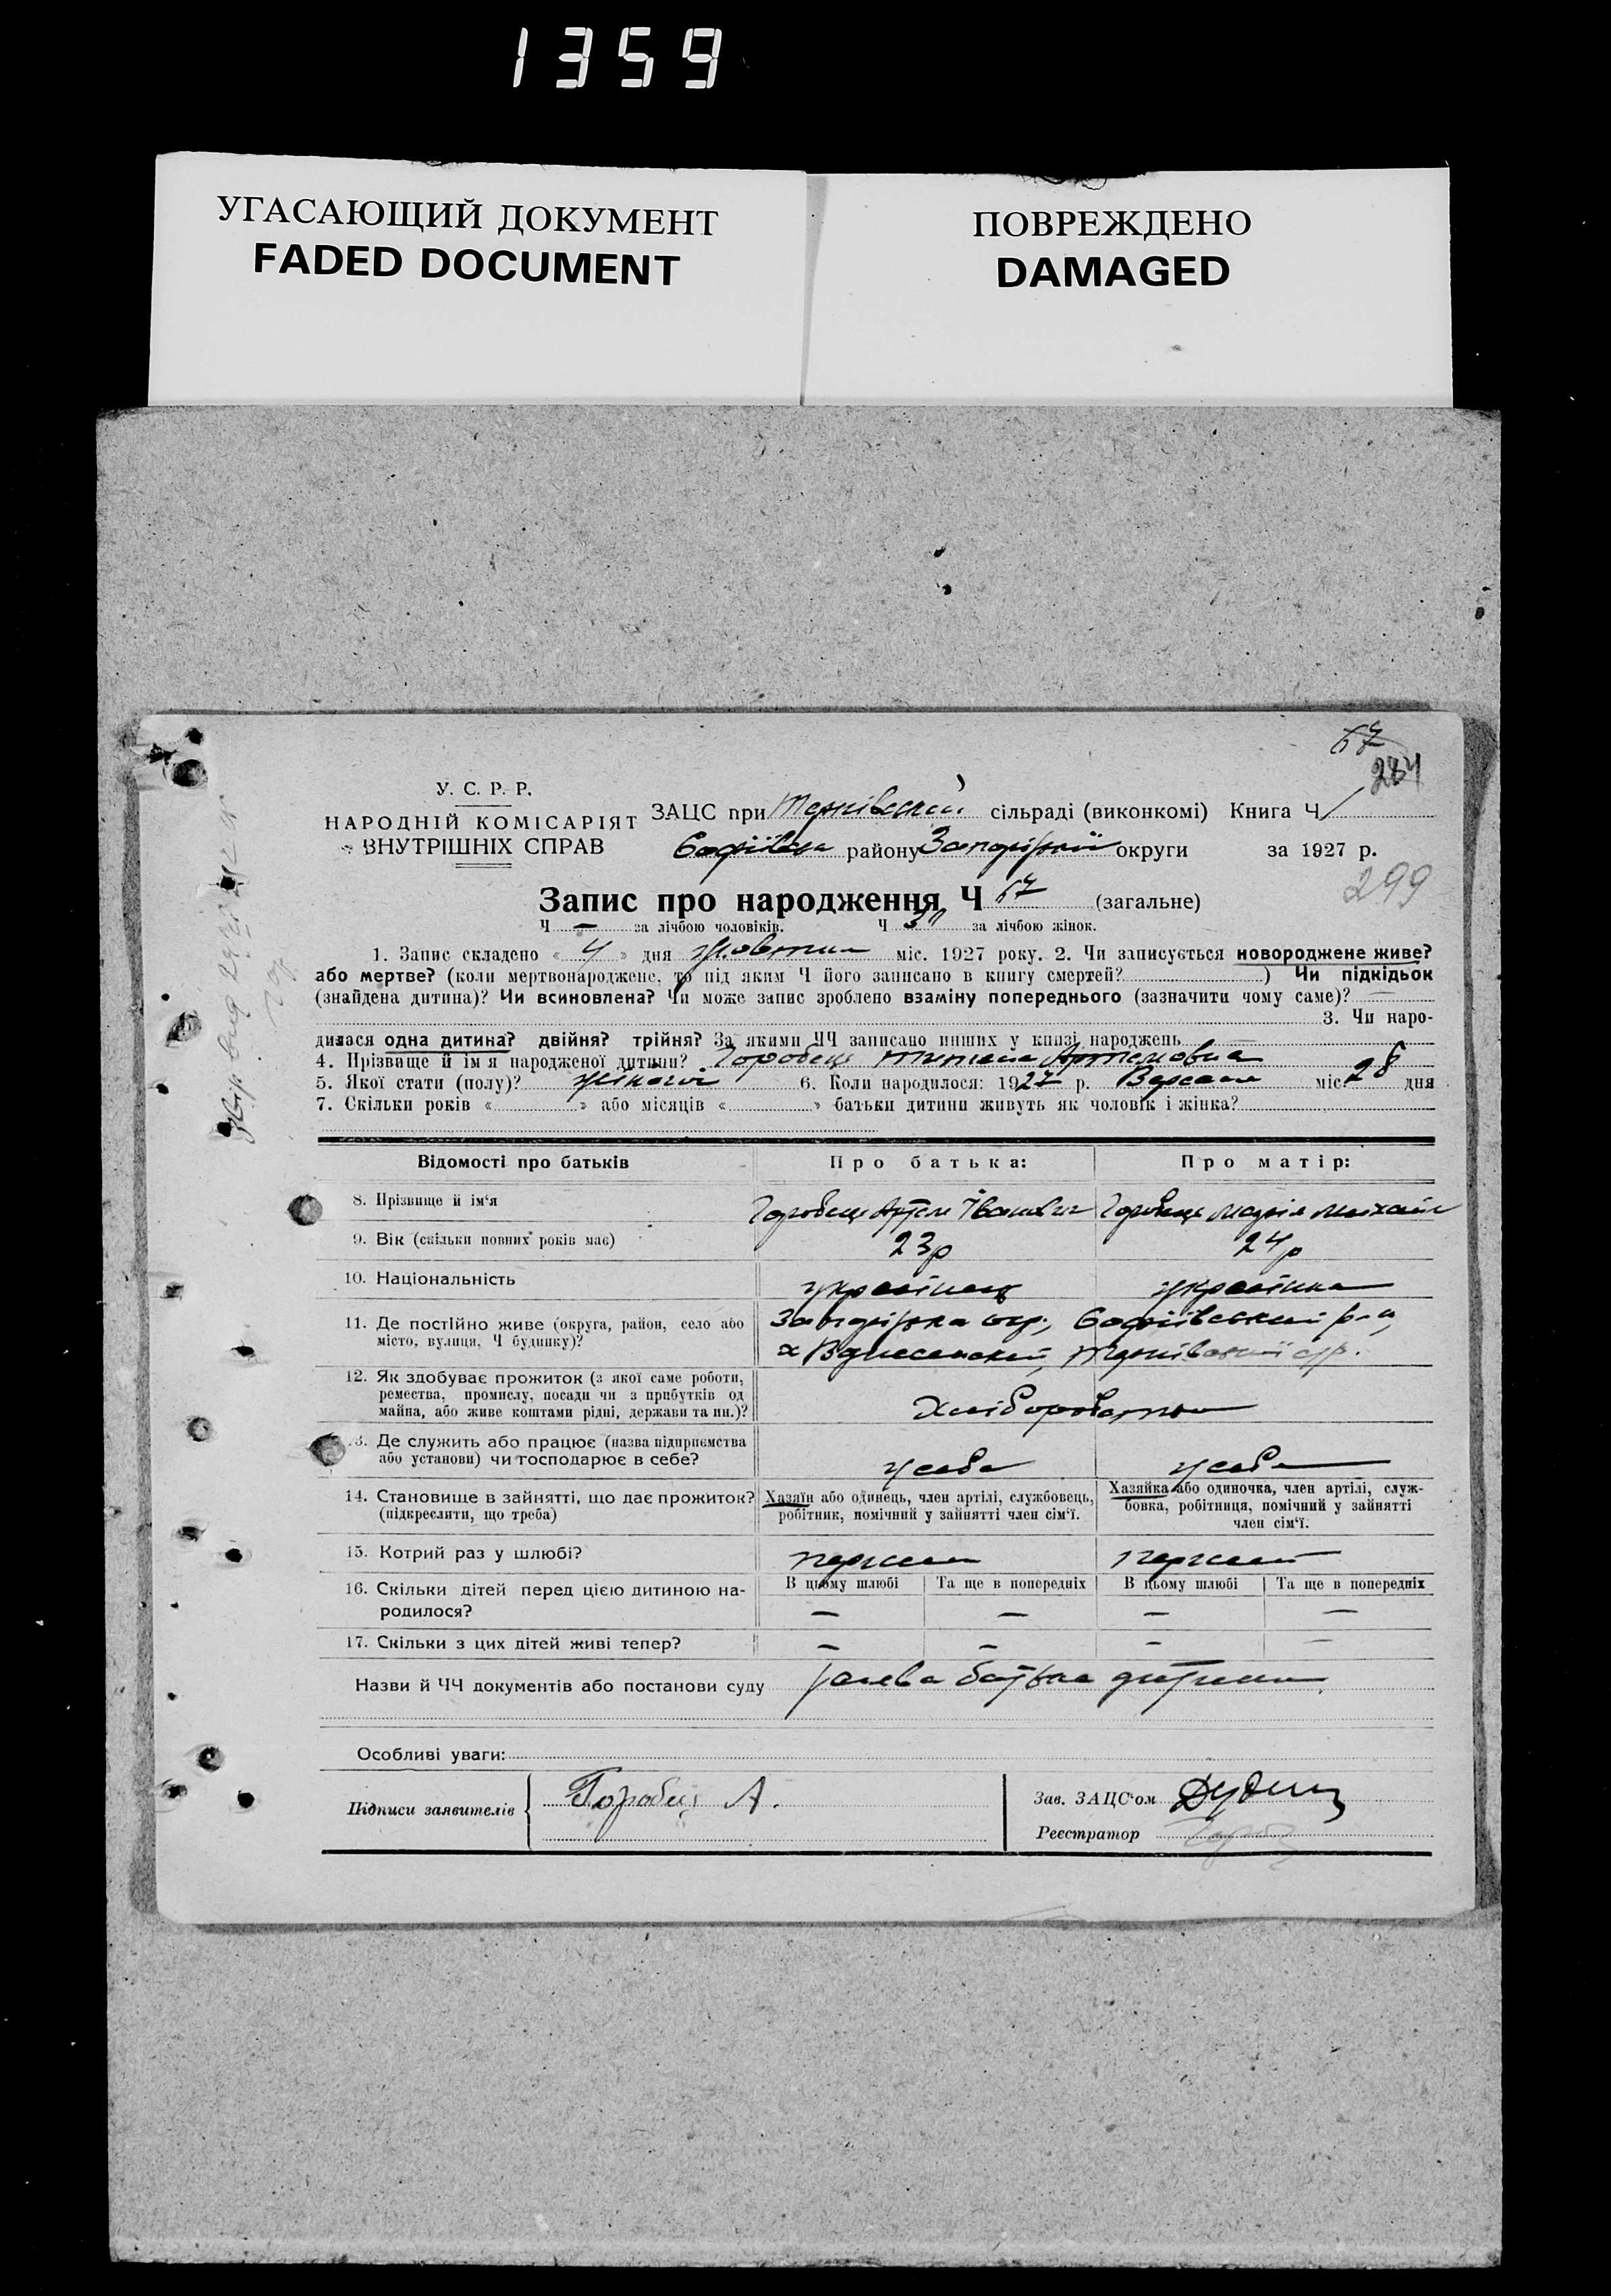 1359
УГАСАЮЩИЙ ДОКУМЕНТ
FADED DOCUMENT
ПОВРЕЖДЕНО
DAMAGED
67
284
У. С. Р. Р.
НАРОДНІЙ КОМІСАРІЯТ
ВНУТРІШНІХ СПРАВ
ЗАЦС при Тернівській сільраді (виконкомі) Книга Ч
Софіївськ району Запорізької округи за 1927 р.
299
Запис про народження Ч 67 (загальне)
Ч — за лічбою чоловіків. Ч за лічбою жінок.
1. Запис складено « 4 » дня Жовтня міс. 1927 року. 2. Чи записується новороджене живе?
або мертве? (коли мертвонароджене, то під яким Ч його записано в книгу смертей?) Чи підкідьок
(знайдена дитина)? Чи всиновлена? Чи може запис зроблено взаміну попереднього (зазначити чому саме)? —
3. Чи наро-
дилася одна дитина? двійня? трійня? За якими ЧЧ записано инших у книзі народжень
4. Прізвище й ім'я народженої дитини? Горобець Тетяна Артемовна
5. Якої стати (полу)? жіночої 6. Коли народилося: 1927 р. Вересня міс. 28 дня
7. Скільки років « » або місяців « » батьки дитини живуть як чоловік і жінка?
Відомості про батьків
Про батька:
Про матір:
8. Прізвище й ім'я
Горобець Артем Іванович
Горобець Марія Михайл
9. Вік (скільки повних років має)
23р
24р
10. Національність
українець
українка
11. Де постійно живе (округа, район, село або
місто, вулиця, Ч будинку)?
Запорізька окр., Софіївський р-н,
х Вднесенский, Тернівської с/р.
12. Як здобуває прожиток (з якої саме роботи,
ремества, промислу, посади чи з прибутків од
майна, або живе коштами рідні, держави та ин.)?
Хліборобство
13. Де служить або працює (назва підприємства
або установи) чи господарює в себе?
у себе
у себе
14. Становище в зайнятті, що дає прожиток?
(підкреслити, що треба)
Хазяїн або одинець, член артілі, службовець,
робітник, помічний у зайнятті член сім'ї.
Хазяйка або одиночка, член артілі, служ-
бовка, робітниця, помічний у зайнятті
член сім'ї.
15. Котрий раз у шлюбі?
16. Скільки дітей перед цією дитиною на-
родилося?
В цьому шлюбі
Та ще в попередніх
В цьому шлюбі
Та ще в попередніх
— — — —
17. Скільки з цих дітей живі тепер?
— — — —
Назви й ЧЧ документів або постанови суду
батька дитини
Особливі уваги:
Підписи заявителів
Горобец А.
Зав. ЗАЦС'ом
Реєстратор